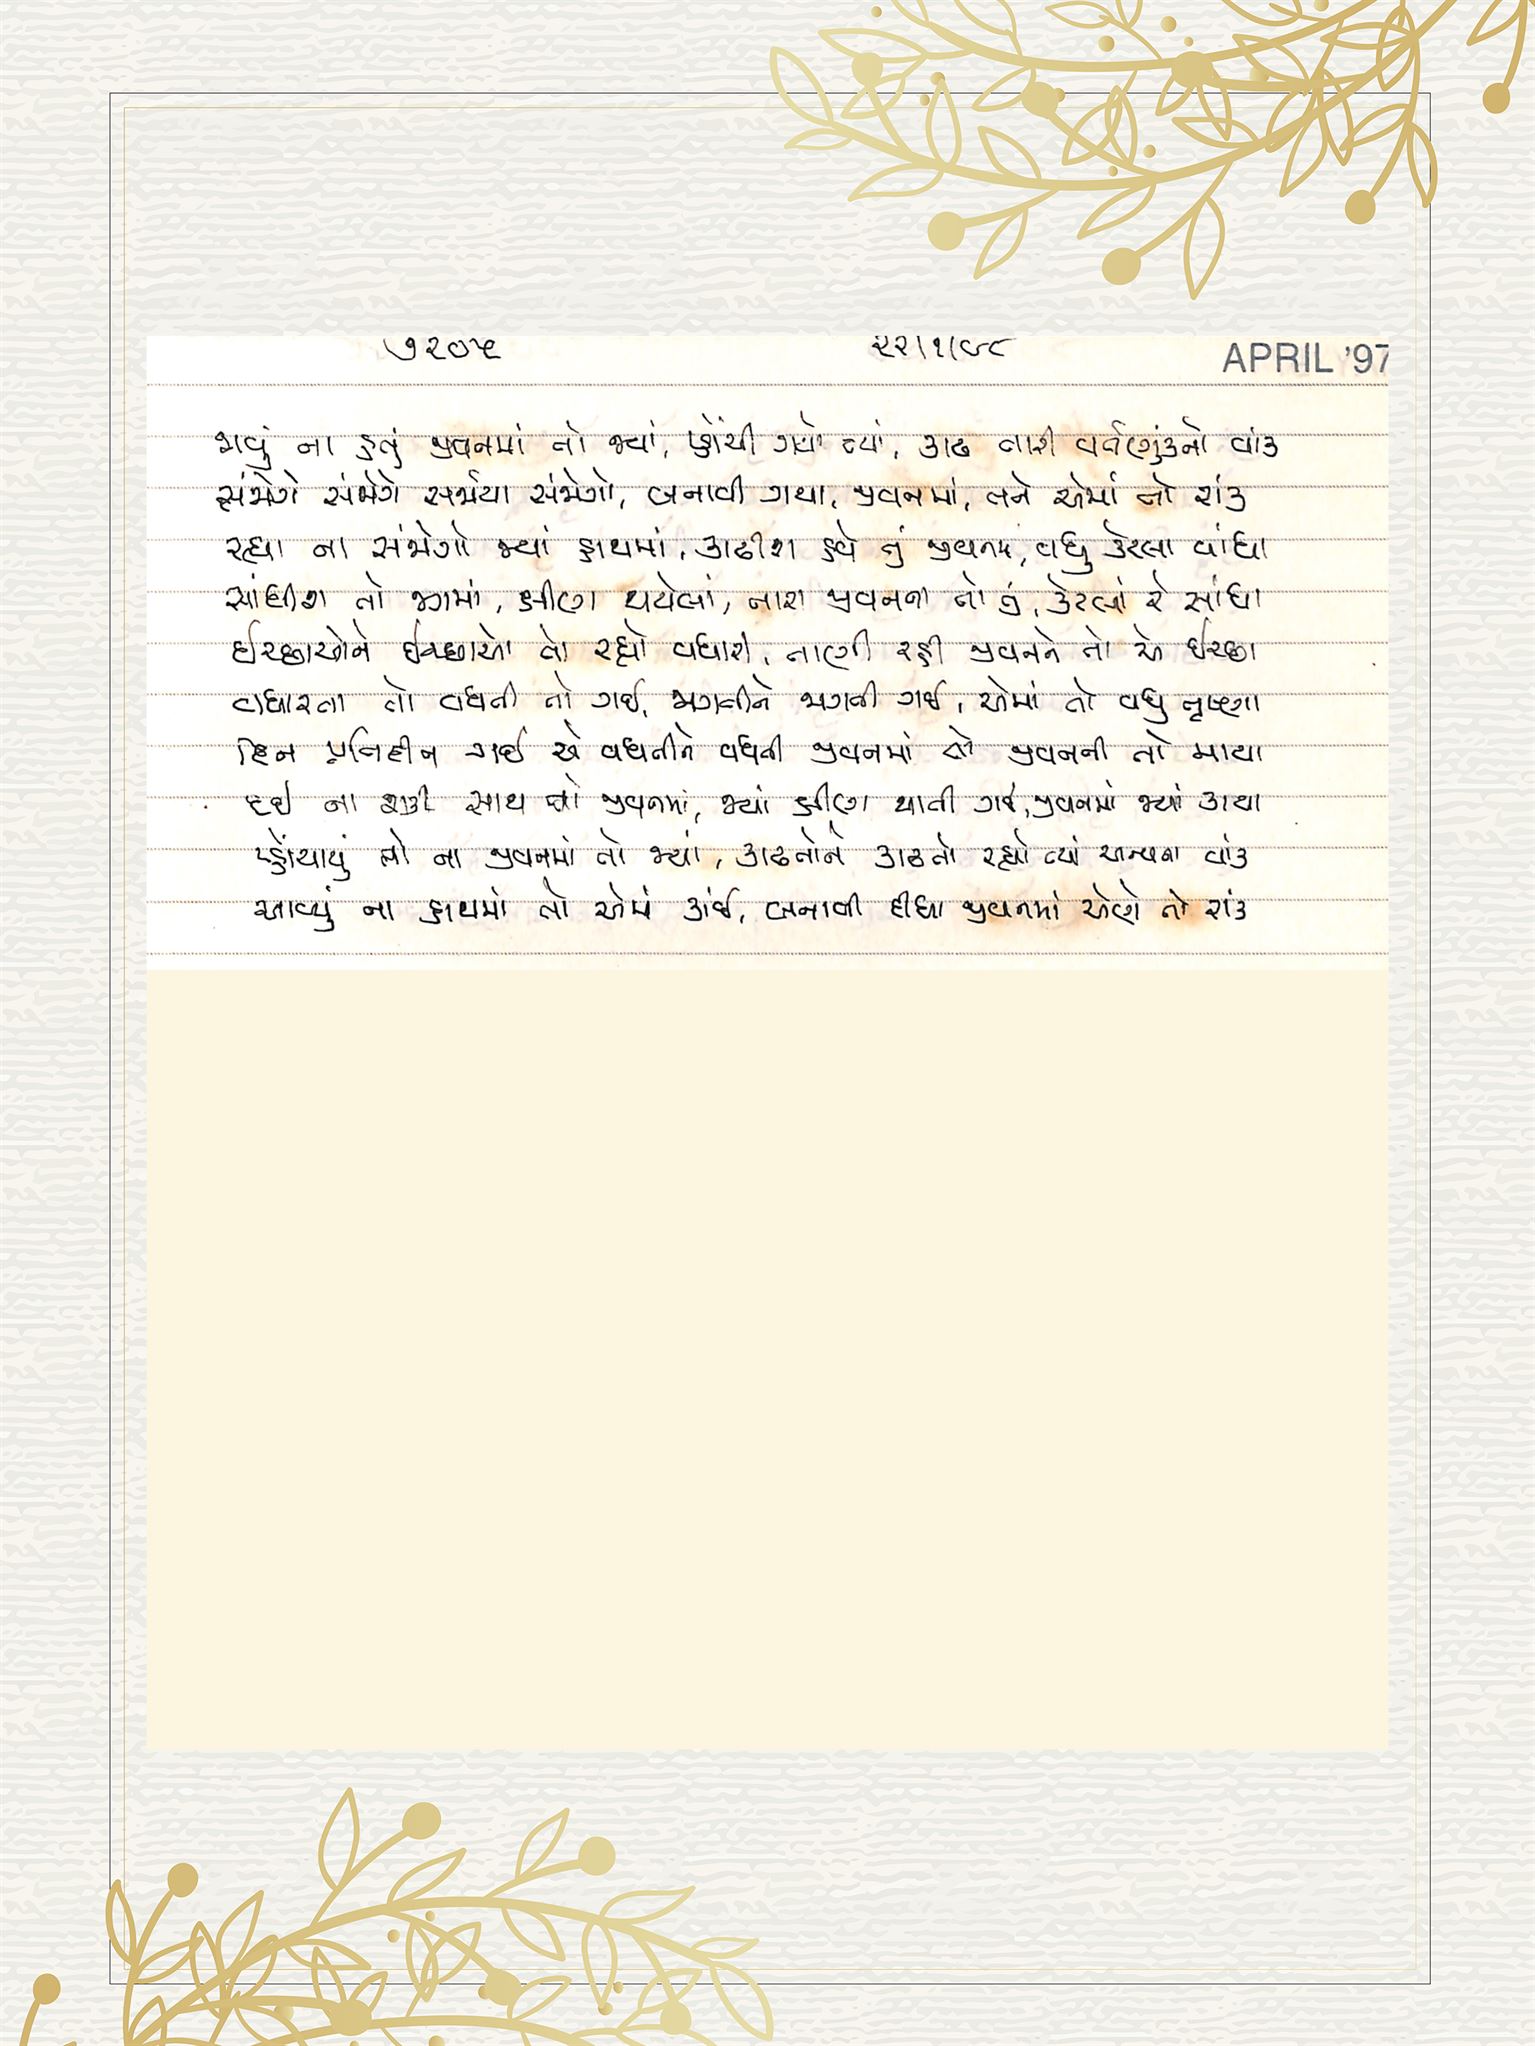 ૭૨૦૫ ૨૨/૧/૯૮ APRIL '97
જાવું ના હતું જીવનમાં તો જ્યાં, પ્હોંચી ગયો ત્યાં, કાઢ તારી વર્તણુંકનો વાંક
સંજોગે સંજોગે સર્જાયા સંજોગો, બનાવી ગયા, જીવનમાં, તને એમાં તો રાંક
રહ્યા ના સંજોગો જ્યાં હાથમાં, કાઢીશ હવે તું જીવનમાં, વધુ કેટલા વાંધા
સાંધીશ તો જગમાં, ક્ષીણ થયેલાં, તારા જીવનના તો તું, કેટલાં રે સાંધા
ઈચ્છાઓને ઈચ્છાઓ તો રહ્યો વધારી, તાણી રહી જીવનને તો એ ઈચ્છા
વધારતા તો વધતી તો ગઈ, જાગતીને જાગતી ગઈ, એમાં તો વધુ તૃષ્ણા
દિન પ્રતિદીન ગઈ એ વધતીને વધતી જીવનમાં તો જીવનની તો માયા
દઈ ના શકી સાથ તો જીવનમાં, જ્યાં ક્ષીણ થાતી ગઈ, જીવનમાં જ્યાં કાયા
પ્હોંચાયું તો ના જીવનમાં તો જ્યાં, કાઢતોને કાઢતો રહ્યો ત્યાં અન્યના વાંક
આવ્યું ના હાથમાં તો એમાં કાંઈ, બનાવી દીધા જીવનમાં એણે તો રાંક